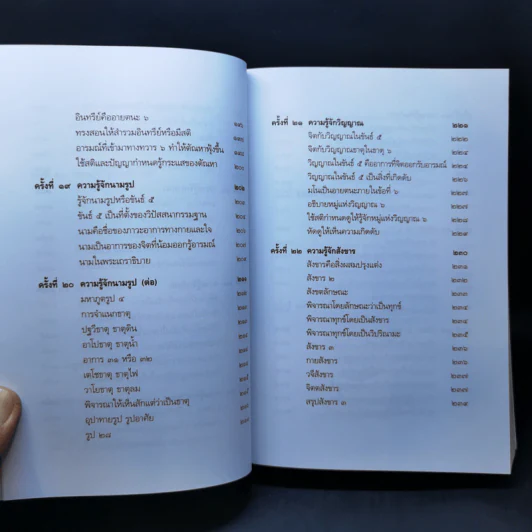 อินทรีย์คืออายตนะ ๖
ทรงสอนให้สำรวมอินทรีย์หรือมีสติ
อารมณ์ที่เข้ามาทางทวาร ๖ ทำให้ตัณหาฟุ้งขึ้น
ใช้สติและปัญญากำหนดรู้กระแสของตัณหา
ครั้งที่ ๑๙ ความรู้จักนามรูป
รู้จักนามรูปหรือขันธ์ ๕
ขันธ์ ๕ เป็นที่ตั้งของวิปัสสนากรรมฐาน
นามคือชื่อของภาวะอาการทางกายและใจ
นามเป็นอาการของจิตที่น้อมออกรู้อารมณ์
นามในพระเถราธิบาย
ครั้งที่ ๒๐ ความรู้จักนามรูป (ต่อ)
มหาภูตรูป ๔
การจำแนกธาตุ
ปฐวีธาตุ ธาตุดิน
อาโปธาตุ ธาตุน้ำ
อาการ ๓๑ หรือ ๓๒
เตโชธาตุ ธาตุไฟ
วาโยธาตุ ธาตุลม
พิจารณาให้เห็นสักแต่ว่าเป็นธาตุ
อุปาทายรูป รูปอาศัย
รูป ๒๘
ครั้งที่ ๒๑ ความรู้จักวิญญาณ ๒๒๑
จิตกับวิญญาณในขันธ์ ๕ ๒๒๒
จิตกับวิญญาณธาตุในธาตุ ๖
วิญญาณในขันธ์ ๕ คืออาการที่จิตออกรับอารมณ์
วิญญาณในขันธ์ ๕ เป็นสิ่งที่เกิดดับ
มโนเป็นอายตนะภายในข้อที่ ๖
อธิบายหมู่แห่งวิญญาณ ๖
ใช้สติกำหนดดูให้รู้จักหมู่แห่งวิญญาณ ๖
หัดดูให้เห็นความเกิดดับ
ครั้งที่ ๒๒ ความรู้จักสังขาร ๒๓๐
สังขารคือสิ่งผสมปรุงแต่ง
สังขาร ๒
สังขตลักษณะ
พิจารณาโดยลักษณะว่าเป็นทุกข์
พิจารณาทุกข์โดยเป็นสังขาร
พิจารณาทุกข์โดยเป็นวิปริณามะ
สังขาร ๓
กายสังขาร
วจีสังขาร
จิตตสังขาร
สรุปสังขาร ๓